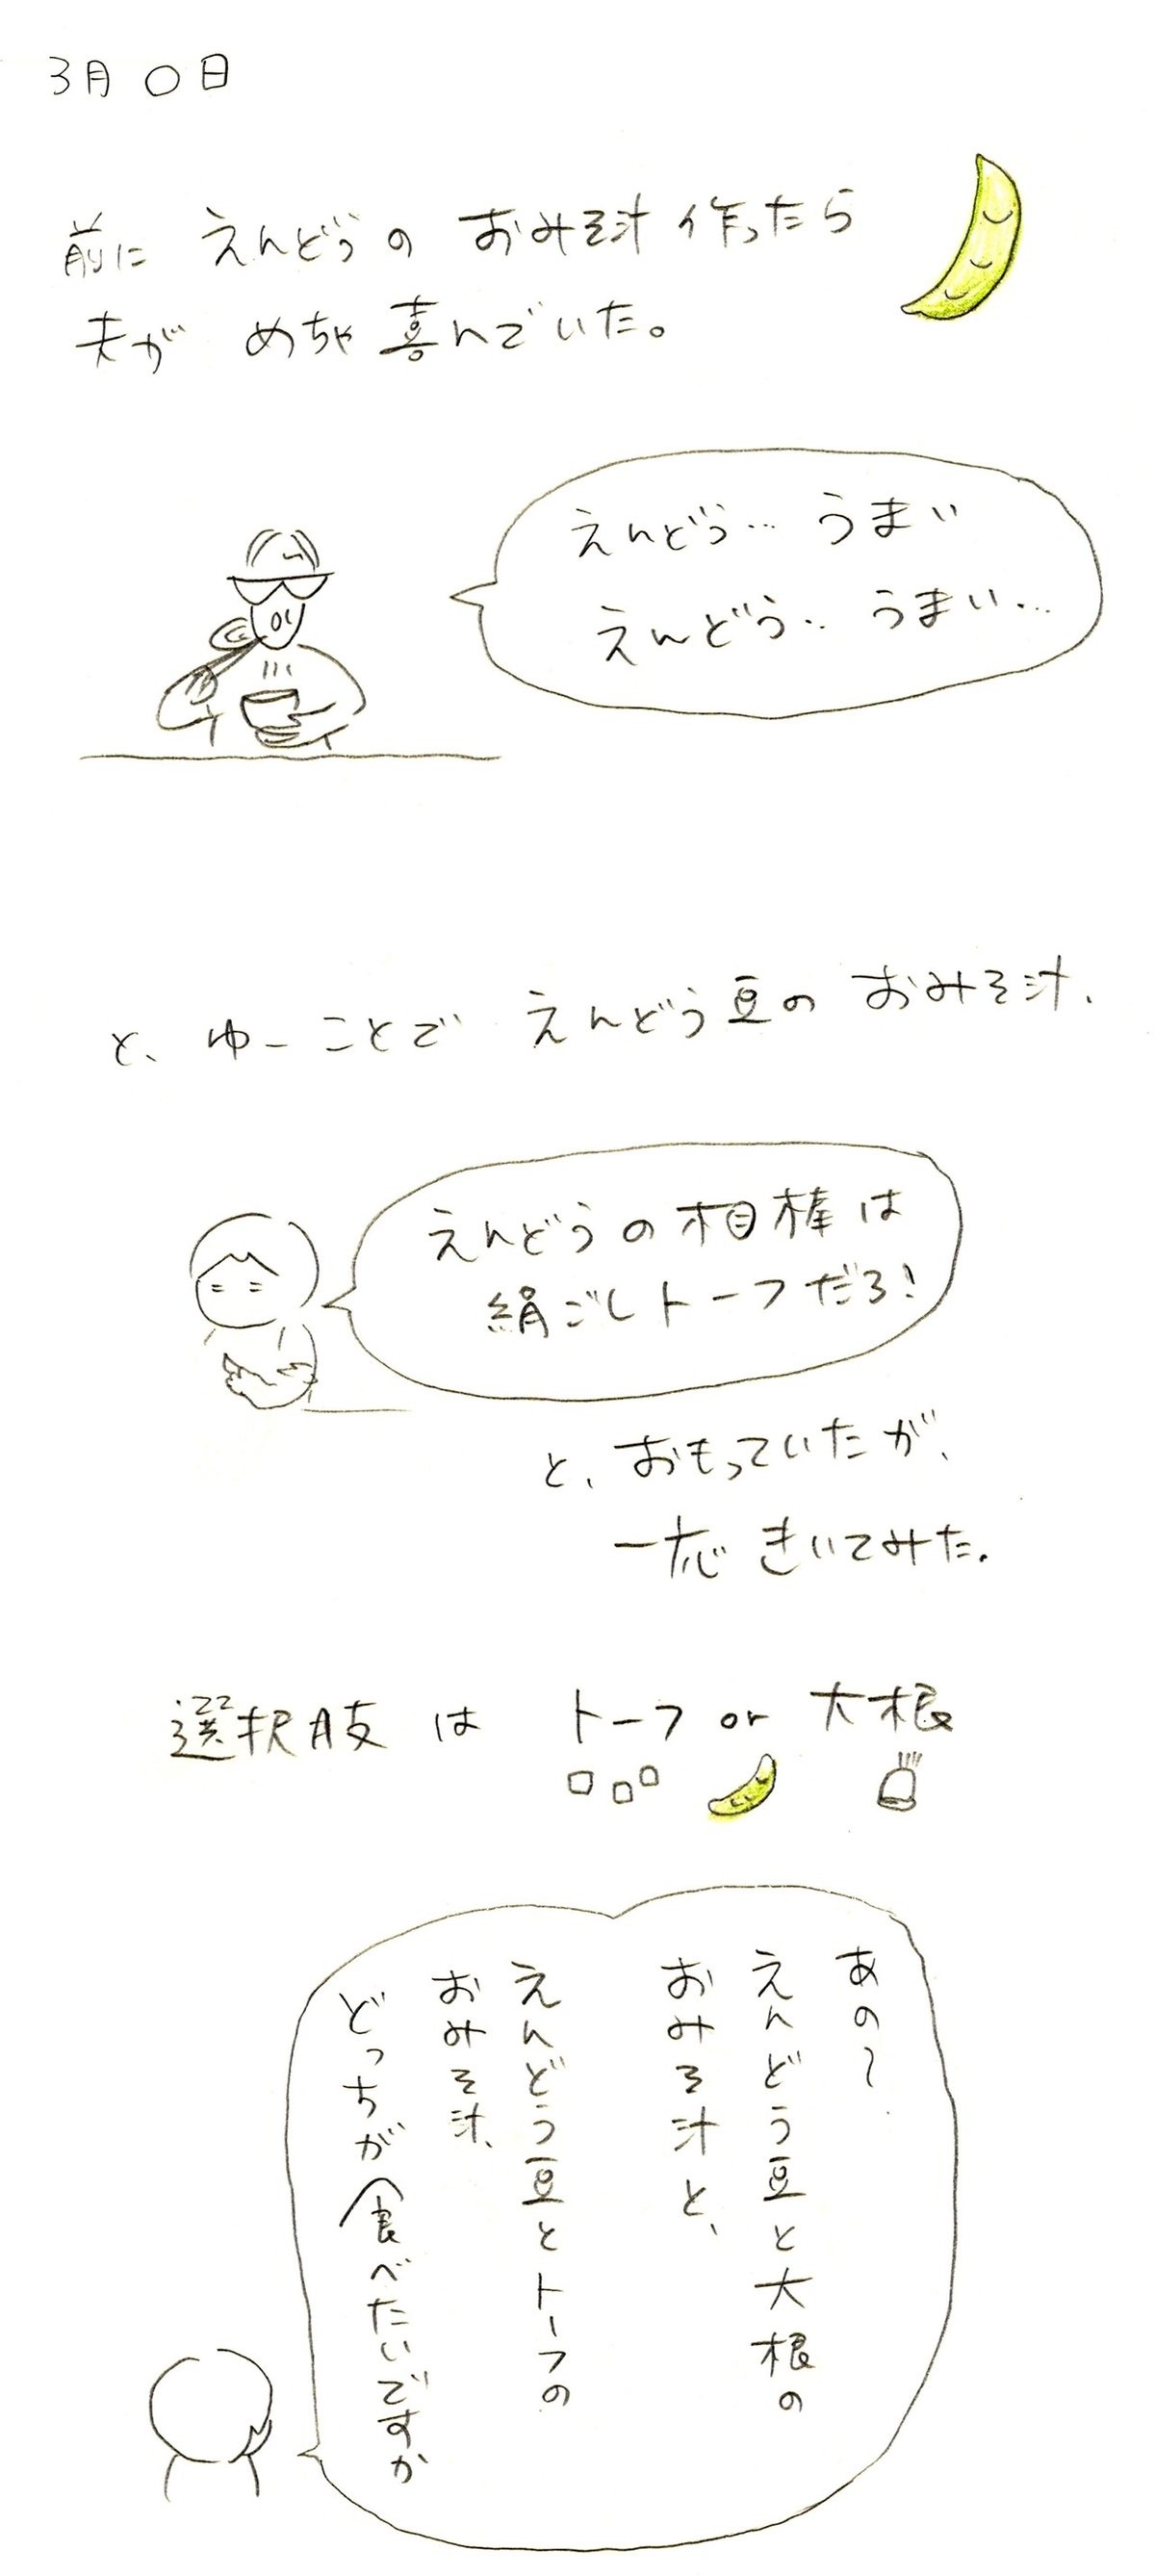 3月〇日
前に えんどうの おみそ汁 作ったら
夫が めちゃ喜んでいた。
えんどう… うまい
えんどう‥ うまい…
と、ゆーことで えんどう豆の おみそ汁、
えんどうの相棒は
絹ごしトーフだろ!
と、おもっていたが、
一応 きいてみた。
選択肢 は トーフ or 大根
あの〜
えんどう豆と大根の
おみそ汁と、
えんどう豆とトーフの
おみそ汁、
どっちが食べたいですか